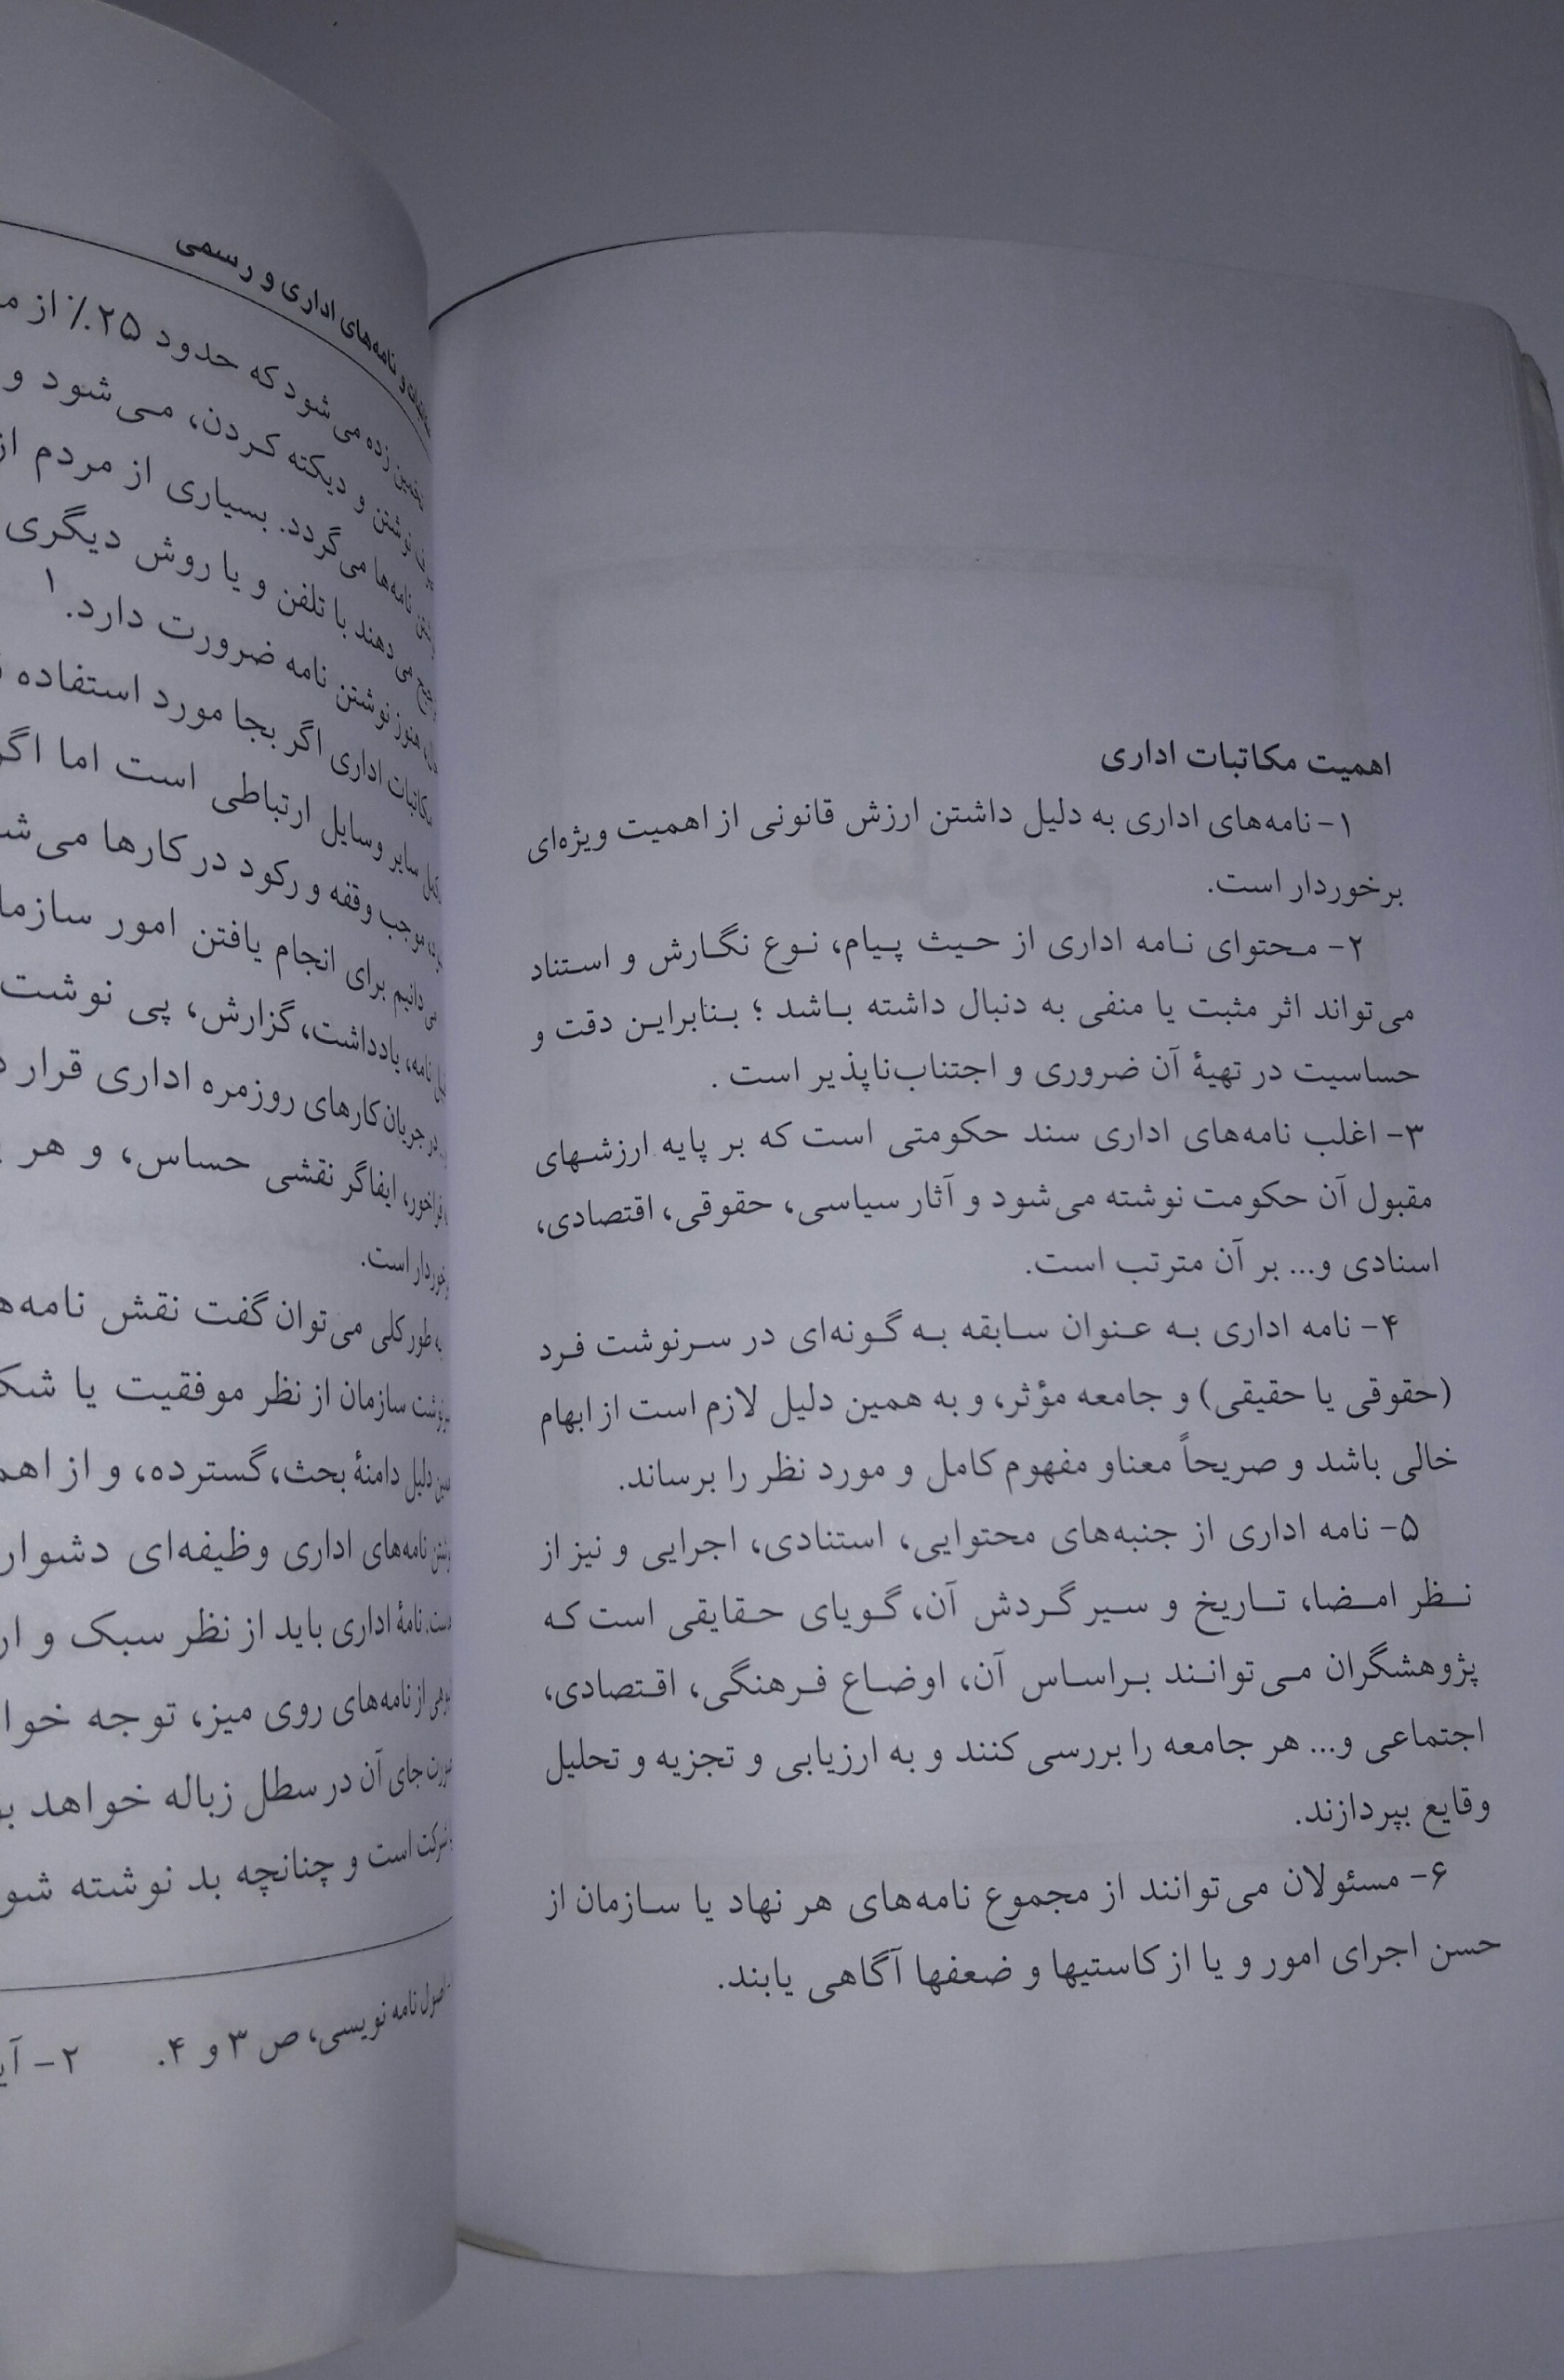 اهمیت مکاتبات اداری
۱- نامه‌های اداری به دلیل داشتن ارزش قانونی از اهمیت ویژه‌ای
برخوردار است.
۲- محتوای نامه اداری از حیث پیام، نوع نگارش و استناد
می‌تواند اثر مثبت یا منفی به دنبال داشته باشد ؛ بنابراین دقت و
حساسیت در تهیهٔ آن ضروری و اجتناب‌ناپذیر است .
۳- اغلب نامه‌های اداری سند حکومتی است که بر پایه ارزشهای
مقبول آن حکومت نوشته می‌شود و آثار سیاسی، حقوقی، اقتصادی،
اسنادی و... بر آن مترتب است.
۴- نامه اداری به عنوان سابقه به گونه‌ای در سرنوشت فرد
(حقوقی یا حقیقی) و جامعه مؤثر، و به همین دلیل لازم است از ابهام
خالی باشد و صریحاً معناو مفهوم کامل و مورد نظر را برساند.
۵- نامه اداری از جنبه‌های محتوایی، استنادی، اجرایی و نیز از
نظر امضا، تاریخ و سیر گردش آن، گویای حقایقی است که
پژوهشگران می‌توانند براساس آن، اوضاع فرهنگی، اقتصادی،
اجتماعی و... هر جامعه را بررسی کنند و به ارزیابی و تجزیه و تحلیل
وقایع بپردازند.
۶- مسئولان می‌توانند از مجموع نامه‌های هر نهاد یا سازمان از
حسن اجرای امور و یا از کاستیها و ضعفها آگاهی یابند.
و نامه‌های اداری و رسمی
زده می‌شود که حدود ۲۵٪ از
نوشتن و دیکته کردن، می‌شود و
نامه‌ها می‌گردد. بسیاری از مردم از
می‌دهند با تلفن و یا روش دیگری
هنوز نوشتن نامه ضرورت دارد.۱
مکاتبات اداری اگر بجا مورد استفاده
سایر وسایل ارتباطی است اما اگر
موجب وقفه و رکود در کارها
می‌دانیم برای انجام یافتن امور
نامه، یادداشت، گزارش، پی نوشت
در جریان کارهای روزمره اداری قرار
فراخور، ایفاگر نقشی حساس، و هر
برخوردار است.
به طور کلی می‌توان گفت نقش
سرنوشت سازمان از نظر موفقیت یا
دلیل دامنهٔ بحث، گسترده، و از
نامه‌های اداری وظیفه‌ای دشوار
نامهٔ اداری باید از نظر سبک و
از نامه‌های روی میز، توجه
جای آن در سطل زباله خواهد
شرکت است و چنانچه بد نوشته
اصول نامه نویسی، ص ۳ و ۴. ۲-